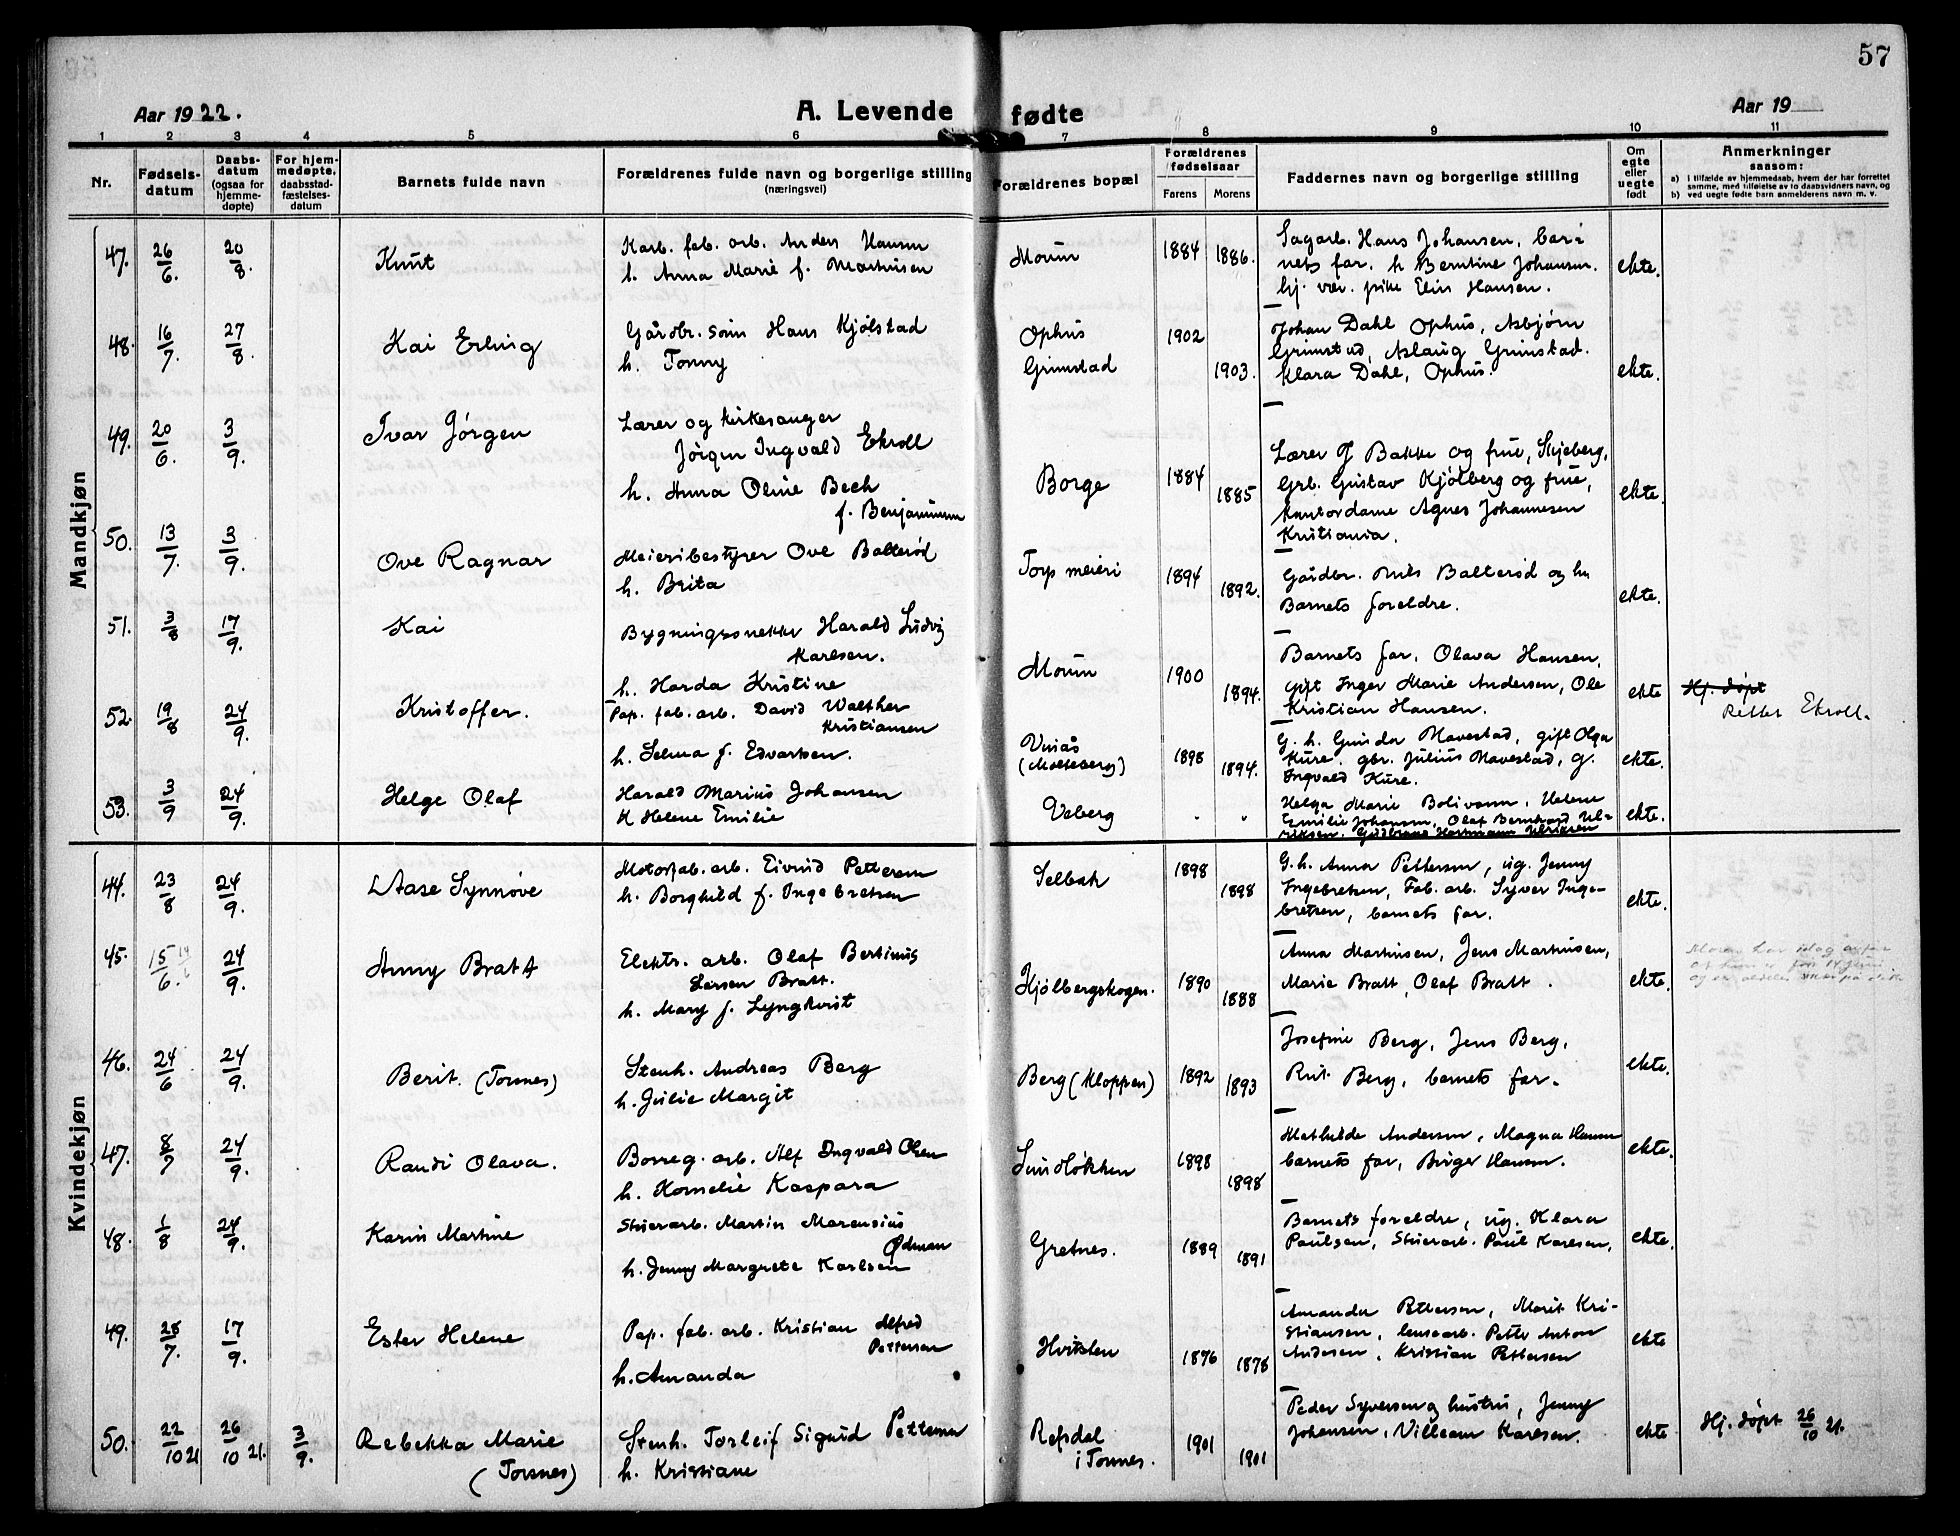 57
Aar 1922.
A. Levende fødte
Aar 19
1 2 3 4 5 6 7 8 9 10 11
Nr.
Fødsels-
datum
Daabs-
datum
(ogsaa for
hjemme-
døpte)
For hjem-
medøpte,
daabsstad-
fæstelses-
datum
Barnets fulde navn
Forældrenes fulde navn og borgerlige stilling
(næringsvei)
Forældrenes bopæl
Forældrenes
fødselsaar
Farens Morens
Faddernes navn og borgerlige stilling
Om
egte
eller
uegte
født
Anmerkninger
saasom:
a) i tilfælde av hjemmedaab, hvem der har forrettet
samme, med tilføielse av to daabsvidners navn, og
b) ved uegte fødte barn anmelderens navn m. v.
Mandkjøn
47. 26/6. 20/8. Knut
Karb. fab. arb. Anders Hansen
h. Anna Marie f. Mathisen
Moum 1884 1886.
Sagarb. Hans Johansen, bar-
nets far. h Berntine Johansen.
hj. vær. pike Elin Hansen.
ekte.
48. 16/7. 27/8. Kai Erling
Gårdbr. sønn Hans Kjølstad
h. Tonny
Ophus
Grimstad
1902
1903.
Johan Dahl Ophus, Asbjørn
Grimstad, Aslaug Grimstad.
Klara Dahl, Ophus.
ekte.
49. 20/6. 3/9. Ivar Jørgen
Lærer og kirkesanger
Jørgen Ingvald Ekroll
h. Anna Oline Bech
f. Benjaminsen
Borge 1884 1885
Lærer J Bakke og frue, Skjeberg,
Grb. Gustav Kjølberg og frue,
kantordame Agnes Johannesen
Kristiania.
ekte.
50. 13/7. 3/9. Ove Ragnar
Meieribestyrer Ove Balterød
h. Brita
Torp meieri 1894 1892.
Gårdbr. Nils Balterød og hu
Barnets foreldre.
ekte.
51. 3/8 17/9. Kai
Bygningssnekker Harald Ludvig
Karlsen.
h. Harda Kristine
Moum 1900 1894.
Barnets far, Olava Hansen,
gift Inger Marie Andersen, Ole
Kristian Hansen.
ekte Hj. døpt
Retter Ekroll.
52. 19/8 24/9. Kristoffer.
Pap. fab. arb. David Walther
Kristiansen
h. Selma f. Edvartsen.
(Molteberg) 1895 1894.
G. h. Gunda Navestad, gift Olga
Kure, gbr. Julius Navestad, g.
Ingvald Kure.
ekte.
53. 3/9 24/9. Helge Olaf
Harald Marius Johansen
h Helene Emilie
Veberg " "
Helga Marie Bolivann, Helene
Emilie Johansen, Olaf Bernhard Ul-
riksen, Gudbrand Hartmann Ulriksen
ekte.
Kvindekjøn
44. 23/8 24/9. Aase Synnøve
Motorfab. arb. Eivind Pettersen
h. Borghild f. Ingebretsen
Selbak 1898 1898
G. h. Anna Pettersen, ug. Jenny
Ingebretsen, Fab. arb. Syver Inge-
bretsen, barnets far.
ekte.
45. 15/6. 24/9. Anny Bratt
Elektr. arb. Olaf Bertinus
Larsen Bratt.
h. Mary f. Lyngkvist
Kjølbergskogen. 1890 1888
Anna Mathisen, Jens Mathisen,
Marie Bratt, Olaf Bratt.
ekte.
46. 24/6 24/9. Berit. (Torsnes)
Stenh. Andreas Berg
h. Julie Margit
Berg (Kloppen) 1892 1893
Josefine Berg, Jens Berg,
Rut Berg, barnets far.
ekte.
47. 8/7 24/9. Randi Olava.
Borreg. arb. Alf Ingvald Olsen
h. Kornelie Kaspara
Sundløkken 1898 1898
Mathilde Andersen, Magna Hansen
barnets far, Birger Hansen.
ekte.
48. 1/8 24/9. Karin Martine
Stuerarb. Martin Marensius
Ødman
h. Jenny Margrete Karlsen
Gretnes. 1889 1891
Barnets foreldre, ug. Klara
Paulsen, Stuerarb. Paul Karlsen,
ekte.
49. 28/7. 17/9. Ester Helene
Pap. fab. arb. Kristian Alfred
Pettersen
h. Amanda
Hvitsten 1876 1878
Amanda Pettersen, Marit Kri-
stiansen, lensearb. Petter Anton
Andersen, Kristian Pettersen
ekte
50. 22/10 21 26/10 21. 3/9. Rebekka Marie
(Torsnes)
Stenh. Torleif Sigurd Pettersen
h. Kristiane
Refsdal
i Torsnes. 1901 1901
Peder Syversen og hustru, Jenny
Johansen, Villeam Karlsen.
ekte Hj. døpt 26/10 21.